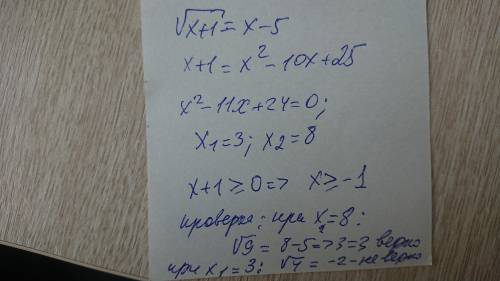 √x+1 = x-5
x+1 = x²-10x+25
x²-11x+24=0;
x₁=3; x₂=8
x+1≥0=> x≥-1
проверка: при x₂=8:
√9 = 8-5=>3=3 верно
при x₁=3: √4 = -2-неверно